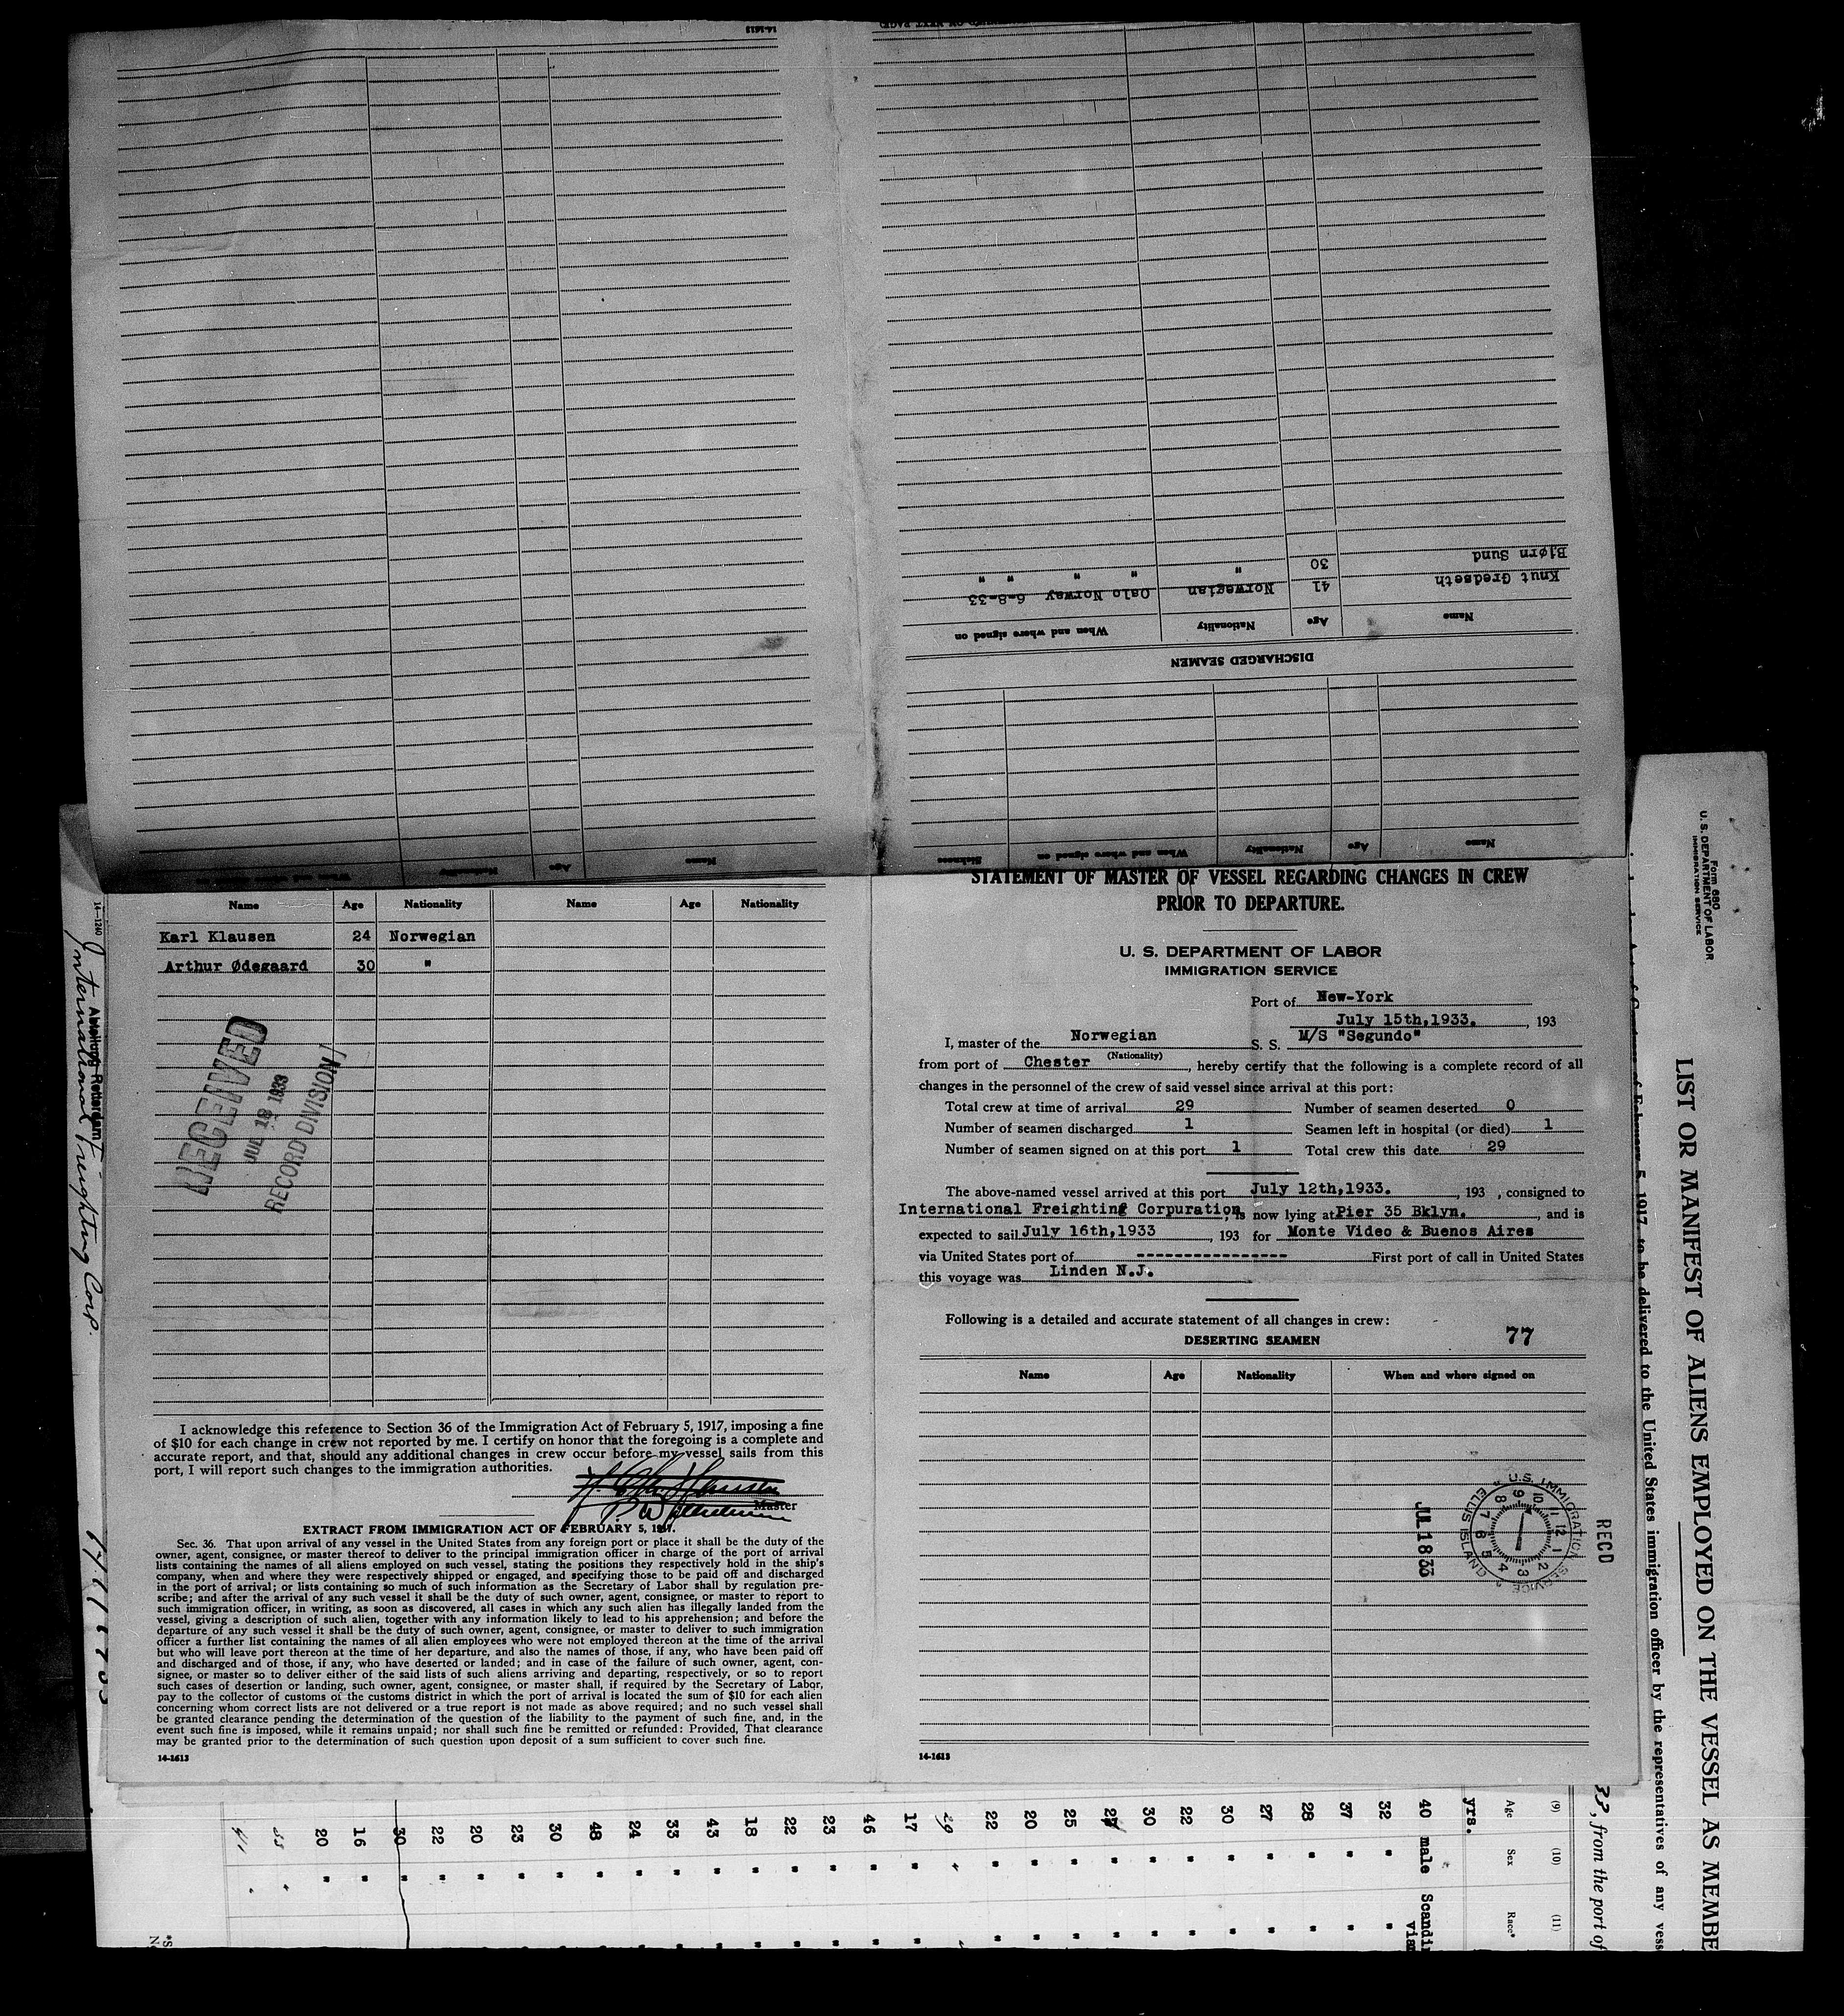 14-1613
DISCHARGED SEAMEN
Name Age Nationality When and where signed on
Knut Gredseth 41 Norwegian Oslo Norway 6-8-33
Bjørn Sund 30 " " " " "
Name Age Nationality When and where signed on Sickness
Name Age Nationality When and where signed on
Name Age Nationality Name Age Nationality
Karl Klausen 24 Norwegian
Arthur Ødegaard 30 "
RECEIVED
JUL 18 1933
RECORD DIVISION
I acknowledge this reference to Section 36 of the Immigration Act of February 5, 1917, imposing a fine
of $10 for each change in crew not reported by me. I certify on honor that the foregoing is a complete and
accurate report, and that, should any additional changes in crew occur before my vessel sails from this
port, I will report such changes to the immigration authorities.
Master
EXTRACT FROM IMMIGRATION ACT OF FEBRUARY 5, 1917.
Sec. 36. That upon arrival of any vessel in the United States from any foreign port or place it shall be the duty of the
owner, agent, consignee, or master thereof to deliver to the principal immigration officer in charge of the port of arrival
lists containing the names of all aliens employed on such vessel, stating the positions they respectively hold in the ship's
company, when and where they were respectively shipped or engaged, and specifying those to be paid off and discharged
in the port of arrival; or lists containing so much of such information as the Secretary of Labor shall by regulation pre-
scribe; and after the arrival of any such vessel it shall be the duty of such owner, agent, consignee, or master to report to
such immigration officer, in writing, as soon as discovered, all cases in which any such alien has illegally landed from the
vessel, giving a description of such alien, together with any information likely to lead to his apprehension; and before the
departure of any such vessel it shall be the duty of such owner, agent, consignee, or master to deliver to such immigration
officer a further list containing the names of all alien employees who were not employed thereon at the time of the arrival
but who will leave port thereon at the time of her departure, and also the names of those, if any, who have been paid off
and discharged and of those, if any, who have deserted or landed; and in case of the failure of such owner, agent, con-
signee, or master so to deliver either of the said lists of such aliens arriving and departing, respectively, or so to report
such cases of desertion or landing, such owner, agent, consignee, or master shall, if required by the Secretary of Labor,
pay to the collector of customs of the customs district in which the port of arrival is located the sum of $10 for each alien
concerning whom correct lists are not delivered or a true report is not made as above required; and no such vessel shall
be granted clearance pending the determination of the question of the liability to the payment of such fine, and, in the
event such fine is imposed, while it remains unpaid; nor shall such fine be remitted or refunded: Provided, That clearance
may be granted prior to the determination of such question upon deposit of a sum sufficient to cover such fine.
14-1613
STATEMENT OF MASTER OF VESSEL REGARDING CHANGES IN CREW
PRIOR TO DEPARTURE.
U. S. DEPARTMENT OF LABOR
IMMIGRATION SERVICE
Port of New-York
July 15th,1933. , 193
I, master of the Norwegian S. S. M/S "Segundo"
(Nationality)
from port of Chester , hereby certify that the following is a complete record of all
changes in the personnel of the crew of said vessel since arrival at this port:
Total crew at time of arrival 29 Number of seamen deserted 0
Number of seamen discharged 1 Seamen left in hospital (or died) 1
Number of seamen signed on at this port 1 Total crew this date 29
The above-named vessel arrived at this port July 12th,1933. , 193 , consigned to
International Freighting Corpuration, is now lying at Pier 35 Bklyn. , and is
expected to sail July 16th,1933 , 193 for Monte Video & Buenos Aires
via United States port of --------------- First port of call in United States
this voyage was Linden N.J.
Following is a detailed and accurate statement of all changes in crew:
DESERTING SEAMEN 77
Name Age Nationality When and where signed on
U.S. IMMIGRATION SERVICE
ELLIS ISLAND
8 9 10 12 1 2 3 4 5 6 7
JUL 18 33
RECD
14-1613
14-1240
Abteilung Rotterdam
International Freighting Corp.
Form 680
U. S. DEPARTMENT OF LABOR
IMMIGRATION SERVICE
LIST OR MANIFEST OF ALIENS EMPLOYED ON THE VESSEL AS MEMBE
5, 1917, to be delivered to the United States immigration officer by the representatives of any vess
33, from the port of
(9) (10) (11)
Age Sex Race*
yrs.
40 male Scandi
vian
32 " "
37 " "
28 " "
27 " "
30 " "
22 " "
30 " "
24 " "
25 " "
20 " "
22 " "
29
17 " "
46 " "
23 " "
22 " "
18 " "
43 " "
33 " "
24 " "
48 " "
30 " "
23 " "
20 " "
22 " "
30 " "
16 " "
20 " "
41